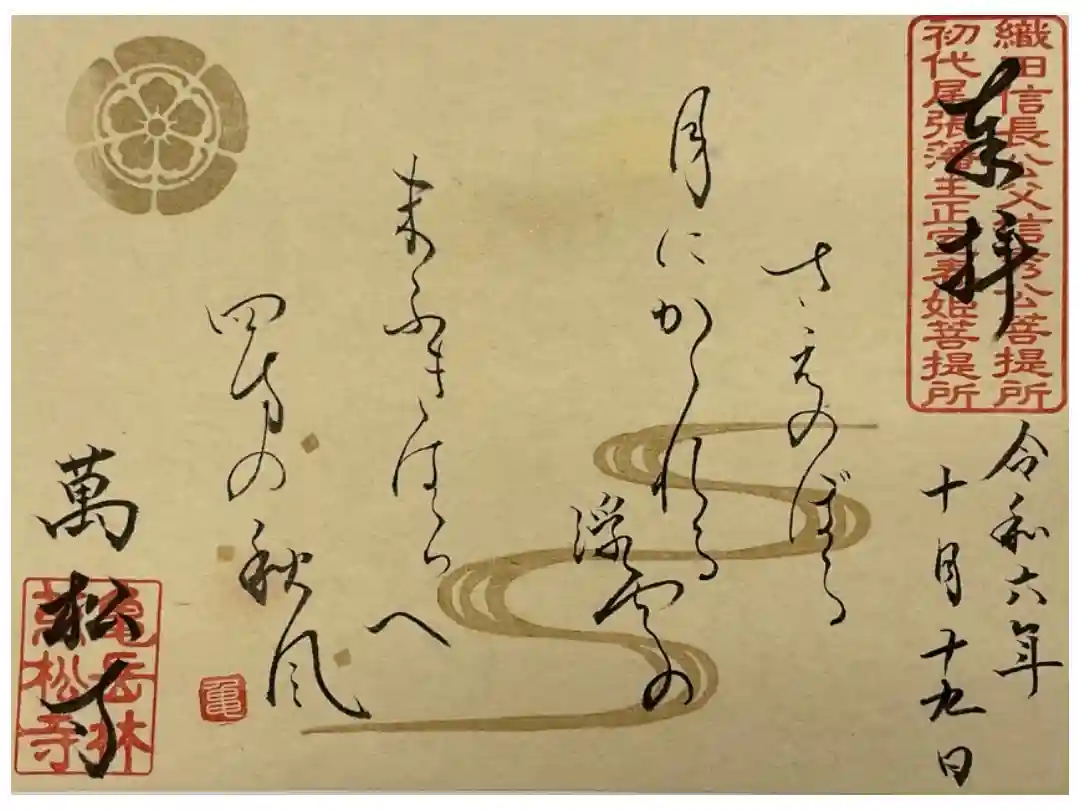 織田信長公父信秀公菩提所
初代尾張藩主正室春姫菩提所
奉拝
令和六年
十月十九日
さえのぼる
月にかゝれる
浮雲の
末ふきはらへ
四方の秋風
亀
萬松寺
亀岳林
萬松寺